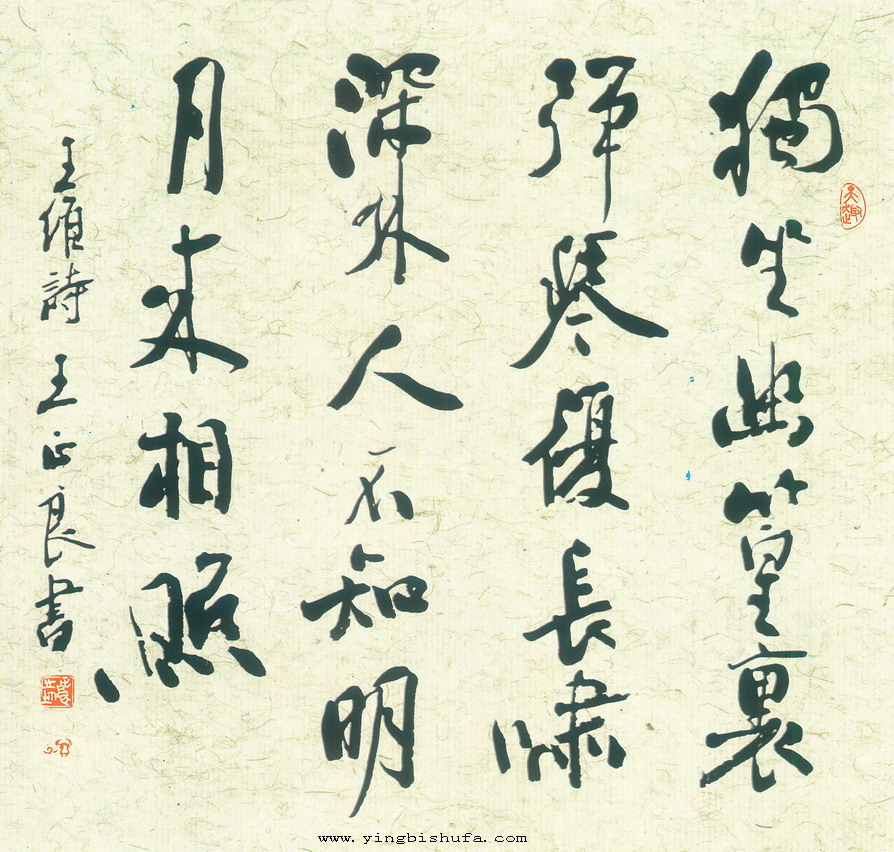 獨坐幽篁裏
彈琴復長嘯
深林人不知明
月来相照
王維詩 王正良書
天趣
www.yingbishufa.com